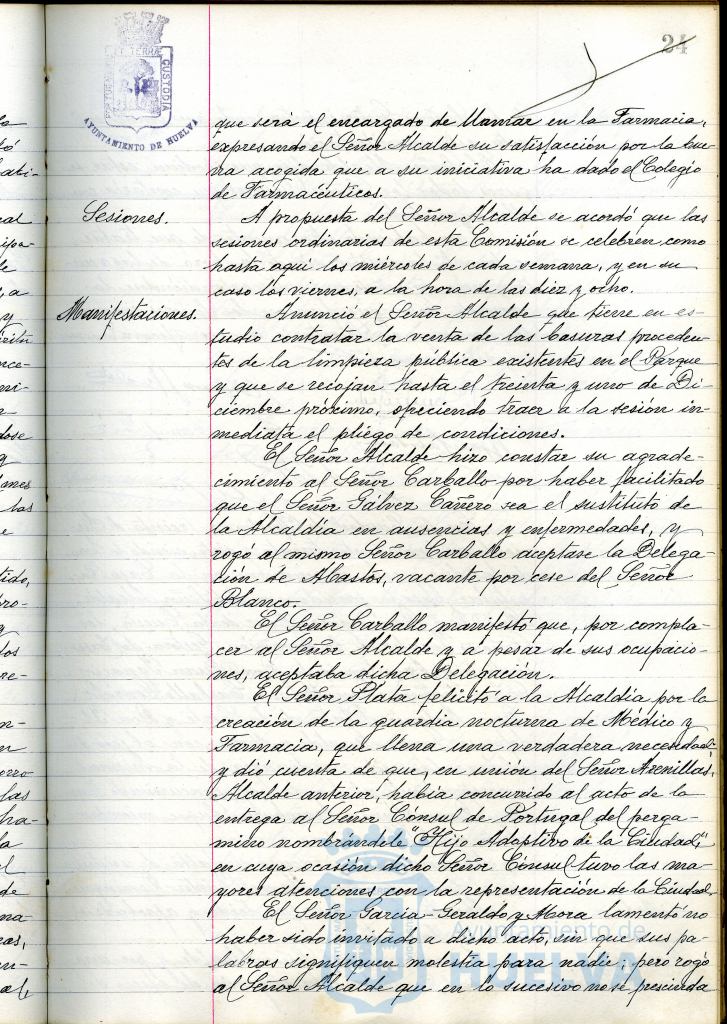 24
PORTUS MARIS ET TERRÆ CUSTODIA
AYUNTAMIENTO DE HUELVA
que será el encargado de llamar en la Farmacia,
expresando el Señor Alcalde su satisfacción por la bue-
na acogida que a su iniciativa ha dado el Colegio
de Farmacéuticos.
Sesiones.
A propuesta del Señor Alcalde se acordó que las
sesiones ordinarias de esta Comisión se celebren como
hasta aquí los miércoles de cada semana, y en su
caso los viernes, a la hora de las diez y ocho.
Manifestaciones.
Anunció el Señor Alcalde que tiene en es-
tudio contratar la venta de las basuras proceden-
tes de la limpieza pública existentes en el Parque
y que se recojan hasta el treinta y uno de Di-
ciembre próximo, ofreciendo traer a la sesión in-
mediata el pliego de condiciones.
El Señor Alcalde hizo constar su agrade-
cimiento al Señor Carballo por haber facilitado
que el Señor Gálvez Cañero sea el sustituto de
la Alcaldía en ausencias y enfermedades, y
rogó al mismo Señor Carballo aceptase la Delega-
ción de Abastos, vacante por cese del Señor
Blanco.
El Señor Carballo manifestó que, por compla-
cer al Señor Alcalde y a pesar de sus ocupacio-
nes, aceptaba dicha Delegación.
El Señor Plata felicitó a la Alcaldía por la
creación de la guardia nocturna de Médico y
Farmacia, que llena una verdadera necesidad,
y dió cuenta de que, en unión del Señor Arenillas,
Alcalde anterior, había concurrido al acto de la
entrega al Señor Cónsul de Portugal del perga-
mino nombrándole "Hijo Adoptivo de la Ciudad",
en cuya ocasión dicho Señor Cónsul tuvo las ma-
yores atenciones con la representación de la Ciudad.
El Señor García-Geraldo y Mora lamentó no
haber sido invitado a dicho acto, sin que sus pa-
labras signifiquen molestia para nadie; pero rogó
al Señor Alcalde que en lo sucesivo no se prescinda
Ayuntamiento de
HUELVA